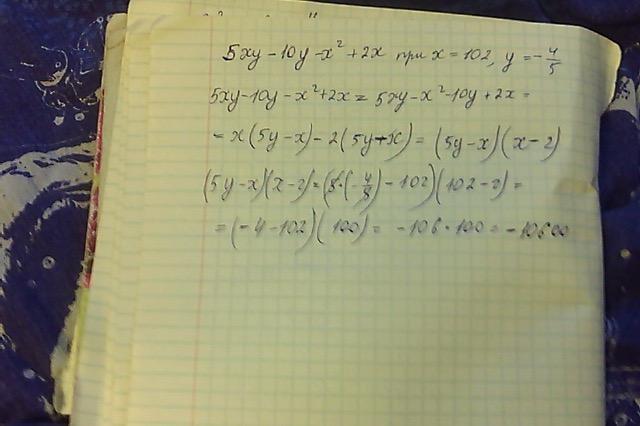 5xy - 10y - x² + 2x при x = 102, y = -4/5
5xy - 10y - x² + 2x = 5xy - x² - 10y + 2x =
= x(5y - x) - 2(5y - x) = (5y - x)(x - 2)
(5y - x)(x - 2) = (5·(-4/5) - 102)(102 - 2) =
= (-4 - 102)(100) = -106 · 100 = -10600